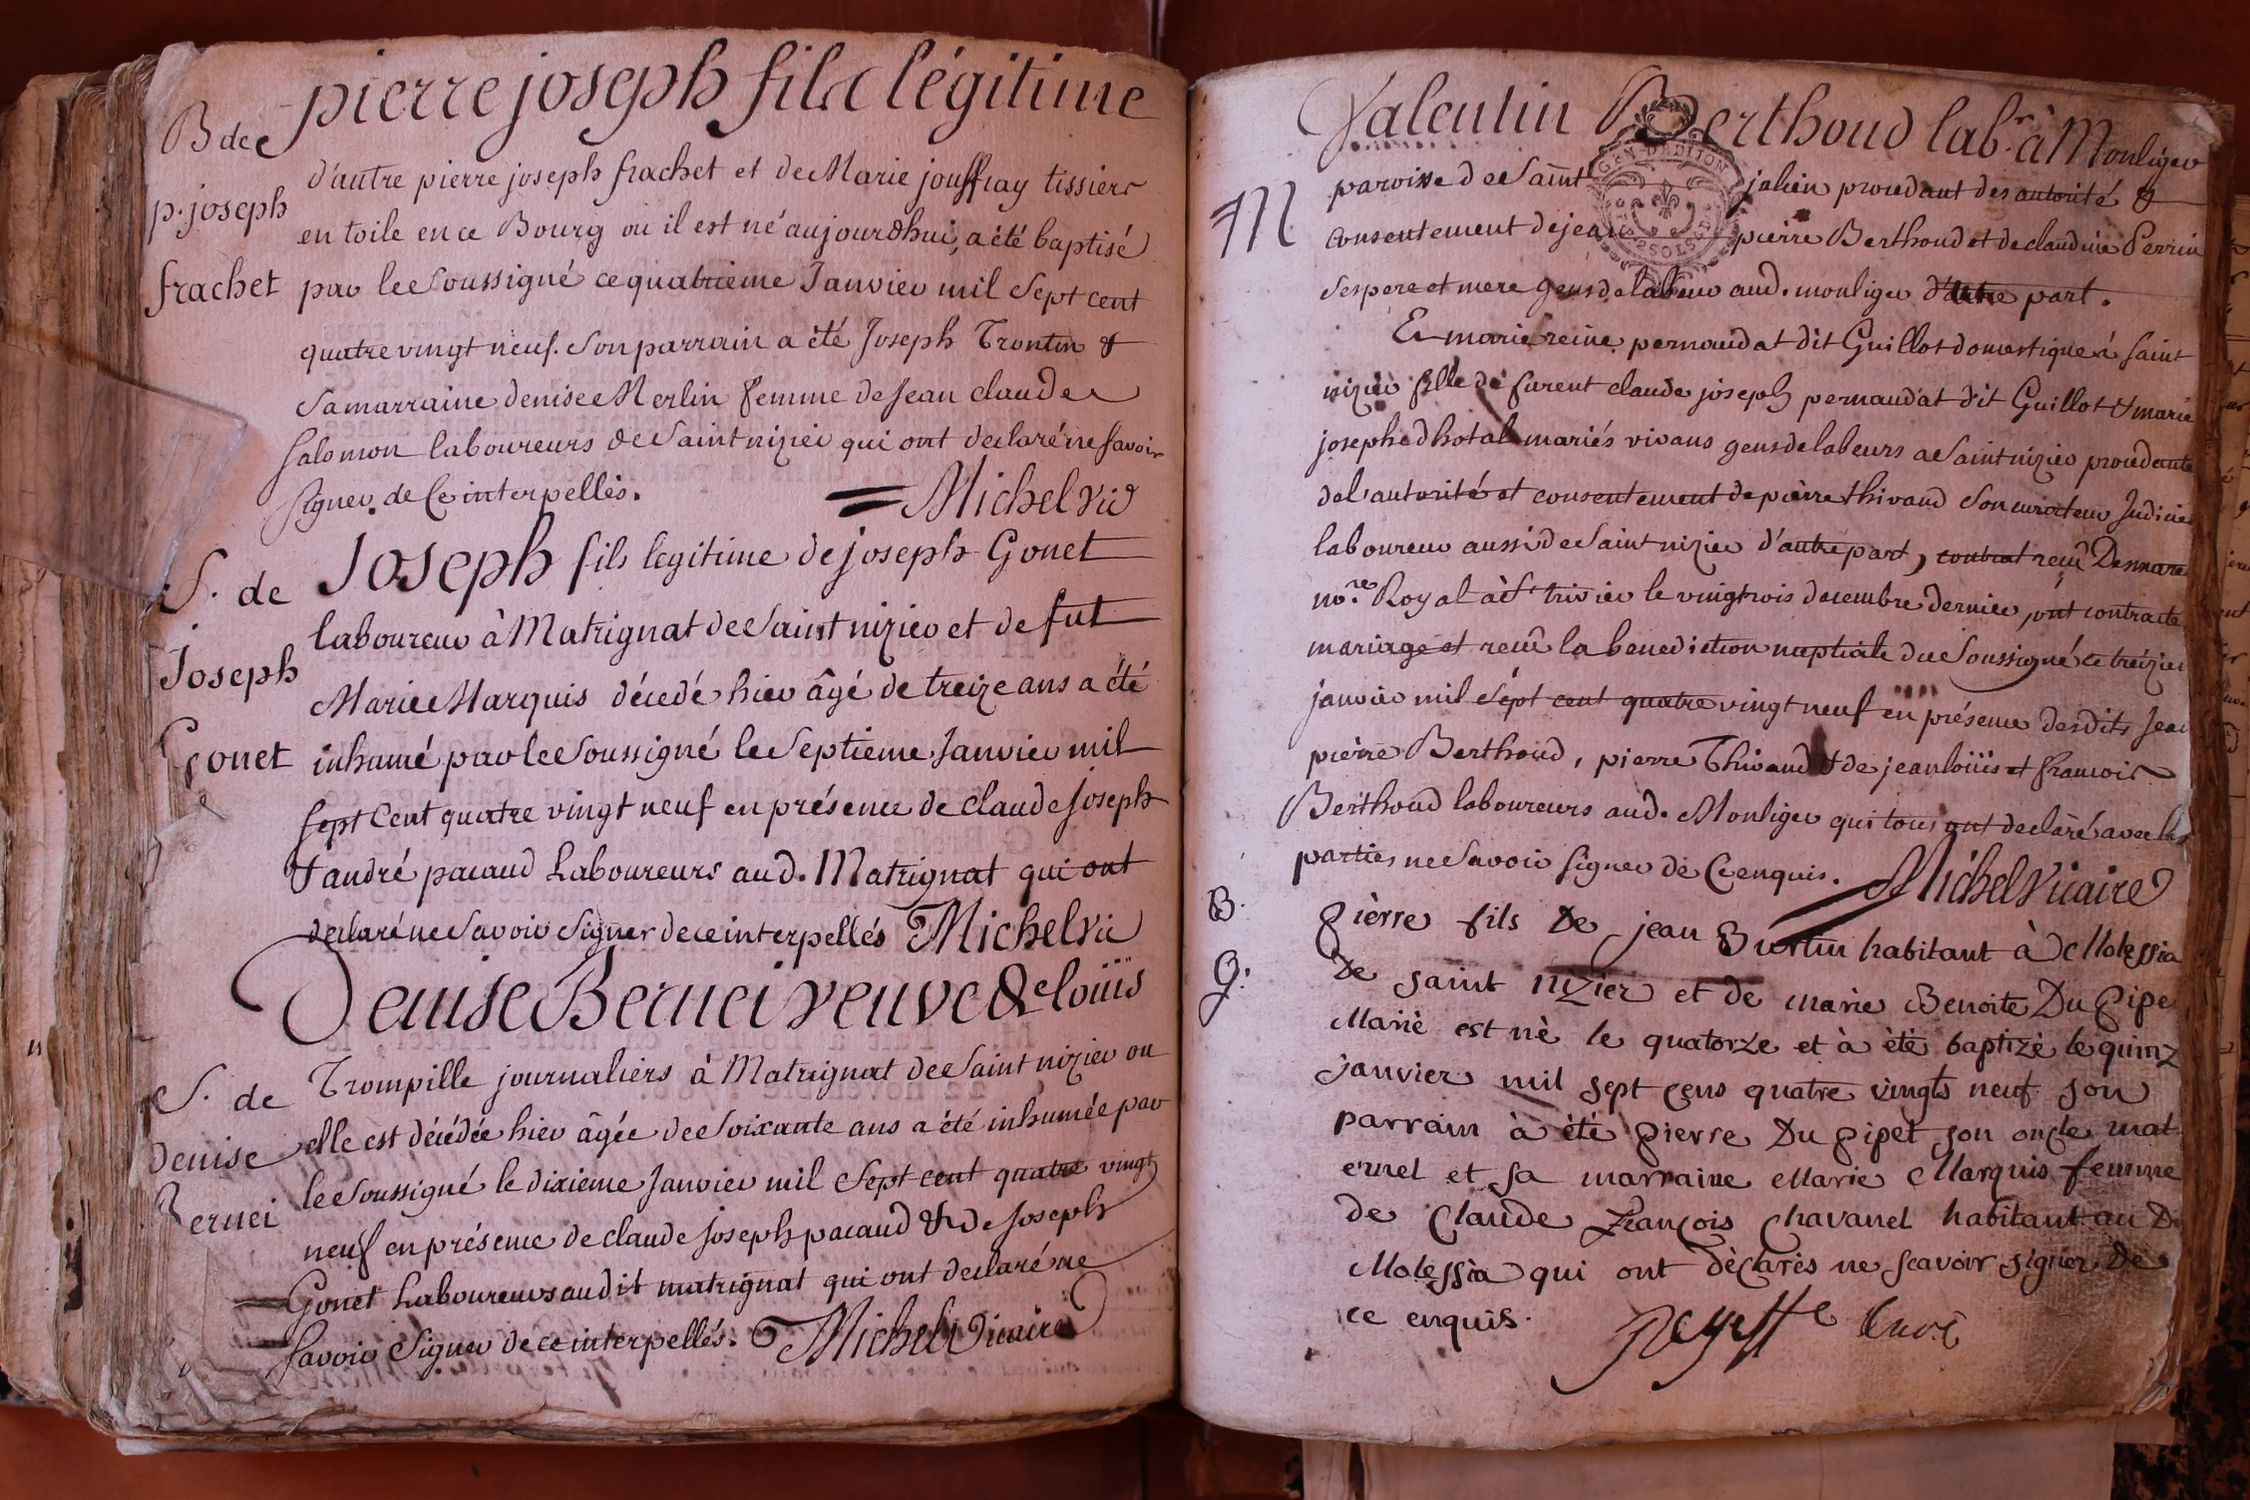 B de
p. joseph
frachet
pierre joseph fils légitime
d'autre pierre joseph frachet et de Marie jouffray tissiers
en toile en ce Bourg où il est né aujourdhui, a été baptisé
par le Soussigné ce quatrieme Janvier mil Sept cent
quatre vingt neuf. Son parrain a été Joseph Trontin &
Sa marraine denise Merlin femme de Jean claude
Salomon laboureurs de Saint nizier qui ont declaré ne Savoir
signer de Ce interpellés.
Michel Vic
S. de
Joseph
Gonet
Joseph fils legitime de joseph Gonet
laboureur à Matrignat de Saint nizier et de fut
Marie Marquis décedé hier âgé de treize ans a été
inhumé par le Soussigné le Septieme Janvier mil
Sept Cent quatre vingt neuf en présence de claude Joseph
& andré pacaud Laboureurs aud. Matrignat qui ont
declaré ne Savoir Signer de ce interpellés Michel Vic
S. de
Denise
Bernei
Denise Bernei veuve de loüis
Trompille journaliers à Matrignat de Saint nizier ou
elle est décédée hier âgée de Soixante ans a été inhumée par
le Soussigné le dixieme Janvier mil Sept cent quatre vingt
neuf en présence de claude Joseph pacaud & de Joseph
Gonet Laboureurs audit matrignat qui ont declaré ne
Savoir Signer de ce interpellés. Michel Vicaire
M
Valentin Berthoud labr. à Monliger
paroisse de Saint julien procedant des autorité &
consentement de jean pierre Berthoud et de claudine Perrin
Ses pere et mere gens de labeur aud. monliger d'une part.
Et marie reine pernaudat dit Guillot domestique à Saint
nizier fille de furent claude joseph pernaudat dit Guillot & marie
josephe dhotal mariés vivans gens de labeurs a Saint nizier procedante
de l'autorité et consentement de pierre thivaud Son curateur Judicie
laboureur aussi de Saint nizier d'autre part, contrat recu Desmare
nore. Royal à St trivier le vingt trois decembre dernier, ont contracté
mariage et recu la benediction nuptiale du Soussigné ce treizie
janvier mil Sept cent quatre vingt neuf en présence desdits Jean
pierre Berthoud, pierre Thivaud & de jean loüis et francois
Berthoud laboureurs aud. Monliger qui tous ont declaré avec les
parties ne Savoir Signer de Ce enquis. Michel Vicaire
B.
G.
pierre fils De jean Burtin habitant à Molessia
De saint nizier et de marie Benoite Du pipe
Marie est nè le quatorze et à èté baptizè le quinz
janvier mil sept cens quatre vingts neuf son
parrain à été pierre Du pipet son oncle mat
ernel et sa marraine Marie Marquis femme
de Claude François Chavanel habitant au D
Molessia qui ont dèclarès ne scavoir signer De
ce enquis.